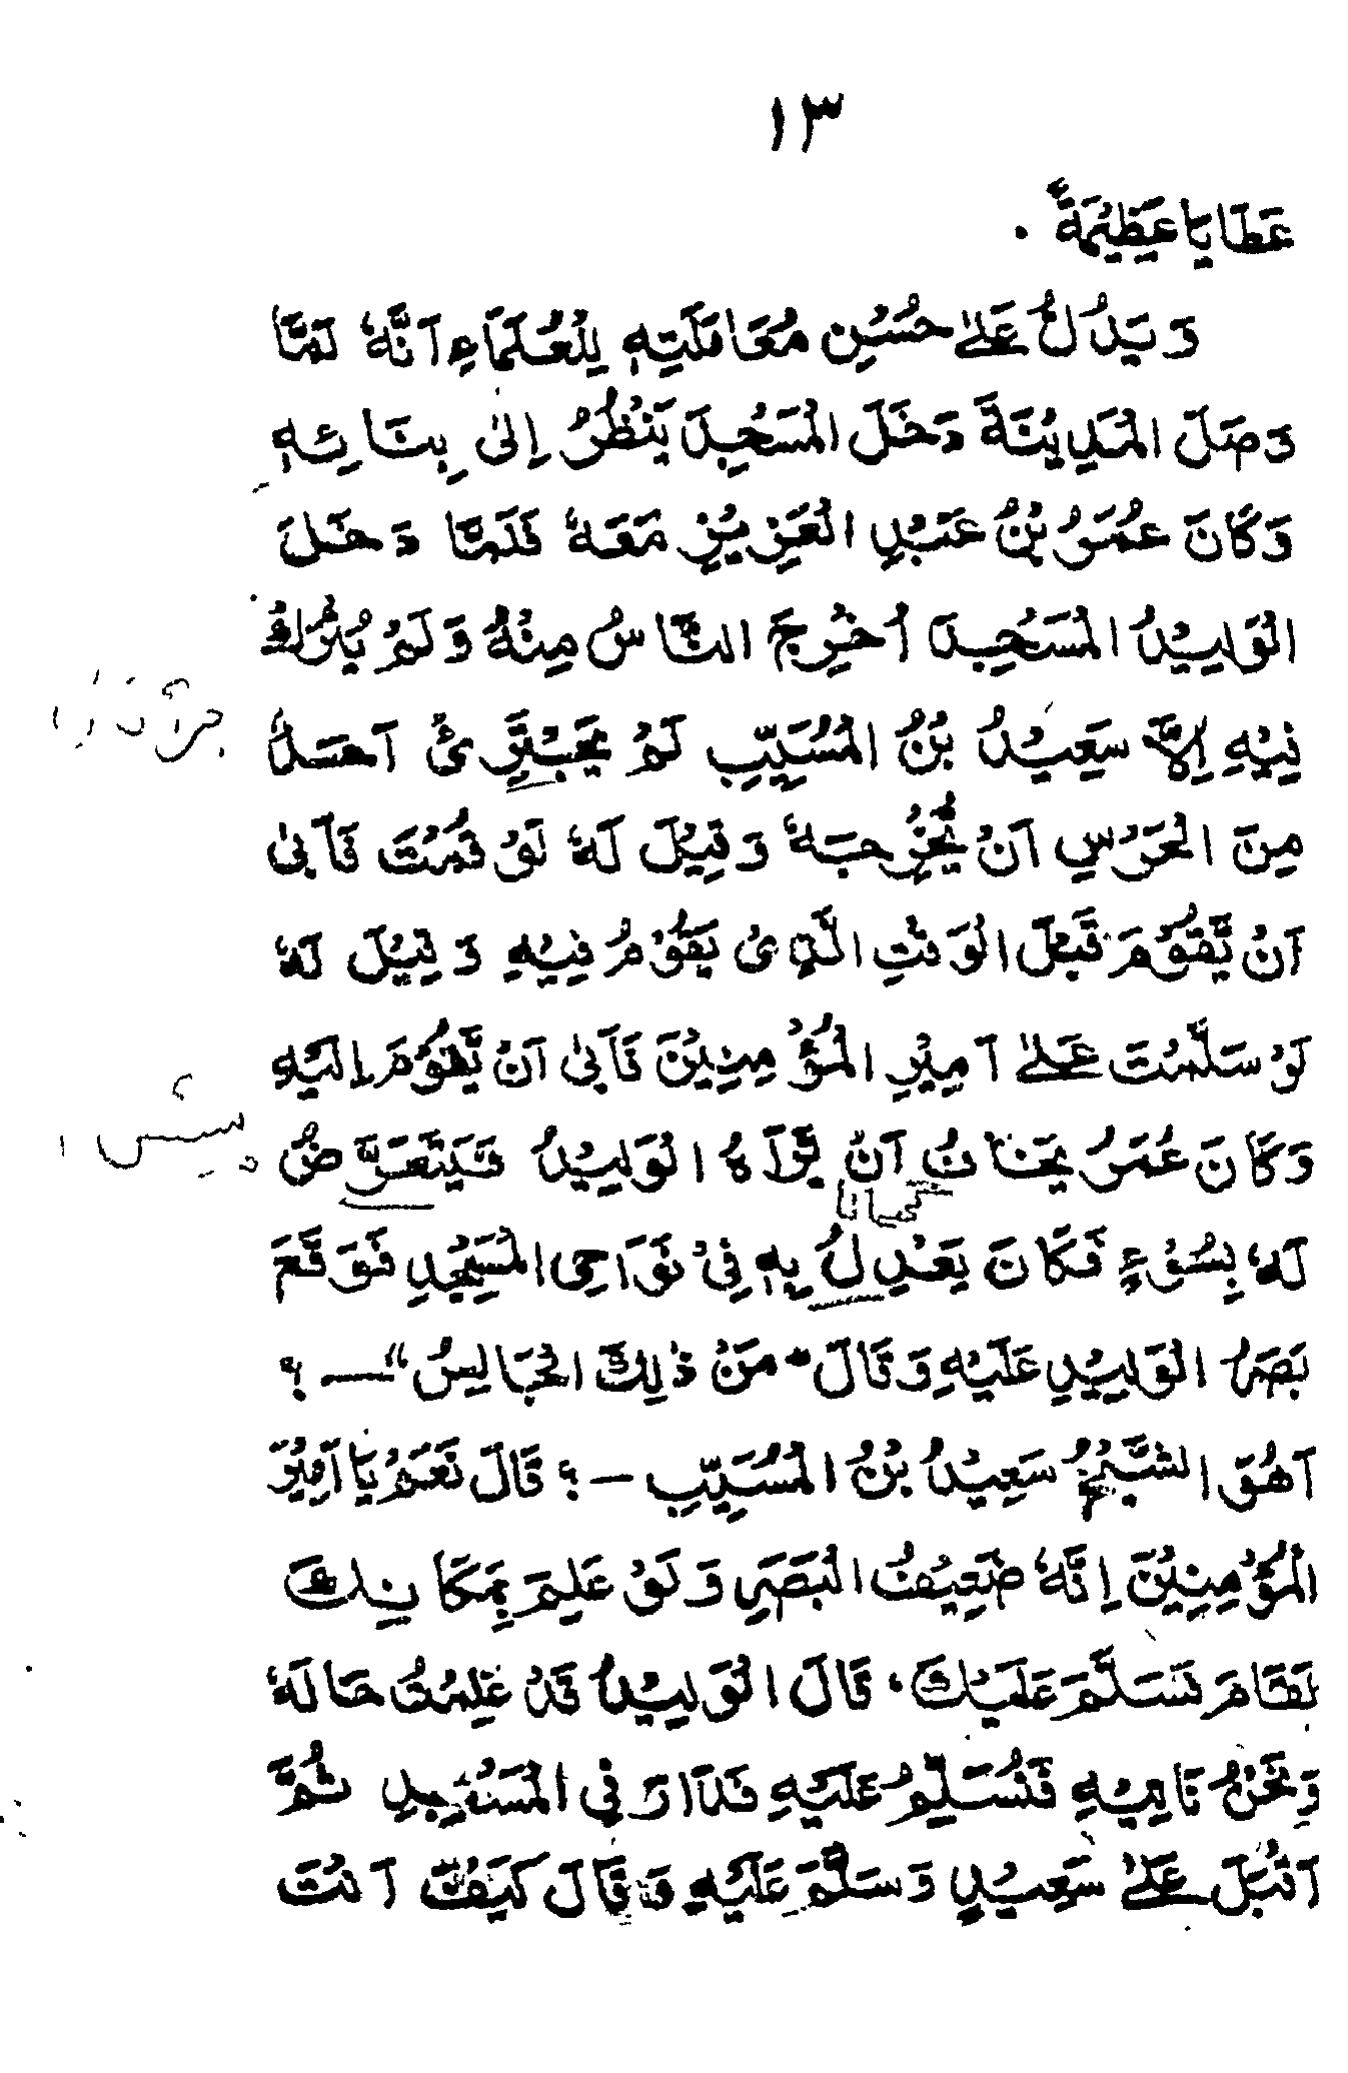 ١٣
عَطَايَا عَظِيْمَةً ۔
وَيَدُلُّ عَلٰى حُسْنِ مُعَامَلَتِهٖ لِلْعُلَمَآءِ اَنَّهٗ لَمَّا
وَصَلَ الْمَدِيْنَةَ دَخَلَ الْمَسْجِدَ يَنْظُرُ اِلٰى بِنَائِهٖ
وَكَانَ عُمَرُ بْنُ عَبْدِ الْعَزِيْزِ مَعَهٗ فَلَمَّا دَخَلَ
الْوَلِيْدُ الْمَسْجِدَ اُخْرِجَ النَّاسُ مِنْهُ وَلَمْ يُتْرَكْ
فِيْهِ اِلَّا سَعِيْدُ بْنُ الْمُسَيِّبِ لَمْ يَجْتَرِئْ اَحَدٌ
مِنَ الْحَرْسِ اَنْ يُّخْرِجَهٗ وَقِيْلَ لَهٗ لَوْ قُمْتَ فَاَبٰى
اَنْ يَّقُوْمَ قَبْلَ الْوَقْتِ الَّذِىْ يَقُوْمُ فِيْهِ وَقِيْلَ لَهٗ
لَوْ سَلَّمْتَ عَلٰى اَمِيْرِ الْمُؤْمِنِيْنَ فَاَبٰى اَنْ يَّقُوْمَ اِلَيْهِ
وَكَانَ عُمَرُ يَخَافُ اَنْ يَّرَاهُ الْوَلِيْدُ فَيَتَعَرَّضُ
لَهٗ بِسُوْءٍ فَكَانَ يَعْدِلُ بِهٖ فِىْ نَوَاحِى الْمَسْجِدِ فَوَقَعَ
بَصَرُ الْوَلِيْدِ عَلَيْهِ وَقَالَ "مَنْ ذٰلِكَ الْجَالِسُ" — ؟
اَهُوَ الشَّيْخُ سَعِيْدُ بْنُ الْمُسَيِّبِ — ؟ قَالَ نَعَمْ يَا اَمِيْرَ
الْمُؤْمِنِيْنَ اِنَّهٗ ضَعِيْفُ الْبَصَرِ وَلَوْ عَلِمَ بِمَكَانِكَ
لَقَامَ فَسَلَّمَ عَلَيْكَ ۔ قَالَ الْوَلِيْدُ قَدْ عَلِمْتُ حَالَهٗ
وَنَحْنُ نَاتِيْهِ فَنُسَلِّمُ عَلَيْهِ فَدَارَ فِى الْمَسْجِدِ ثُمَّ
اَقْبَلَ عَلٰى سَعِيْدٍ وَسَلَّمَ عَلَيْهِ وَقَالَ كَيْفَ اَنْتَ